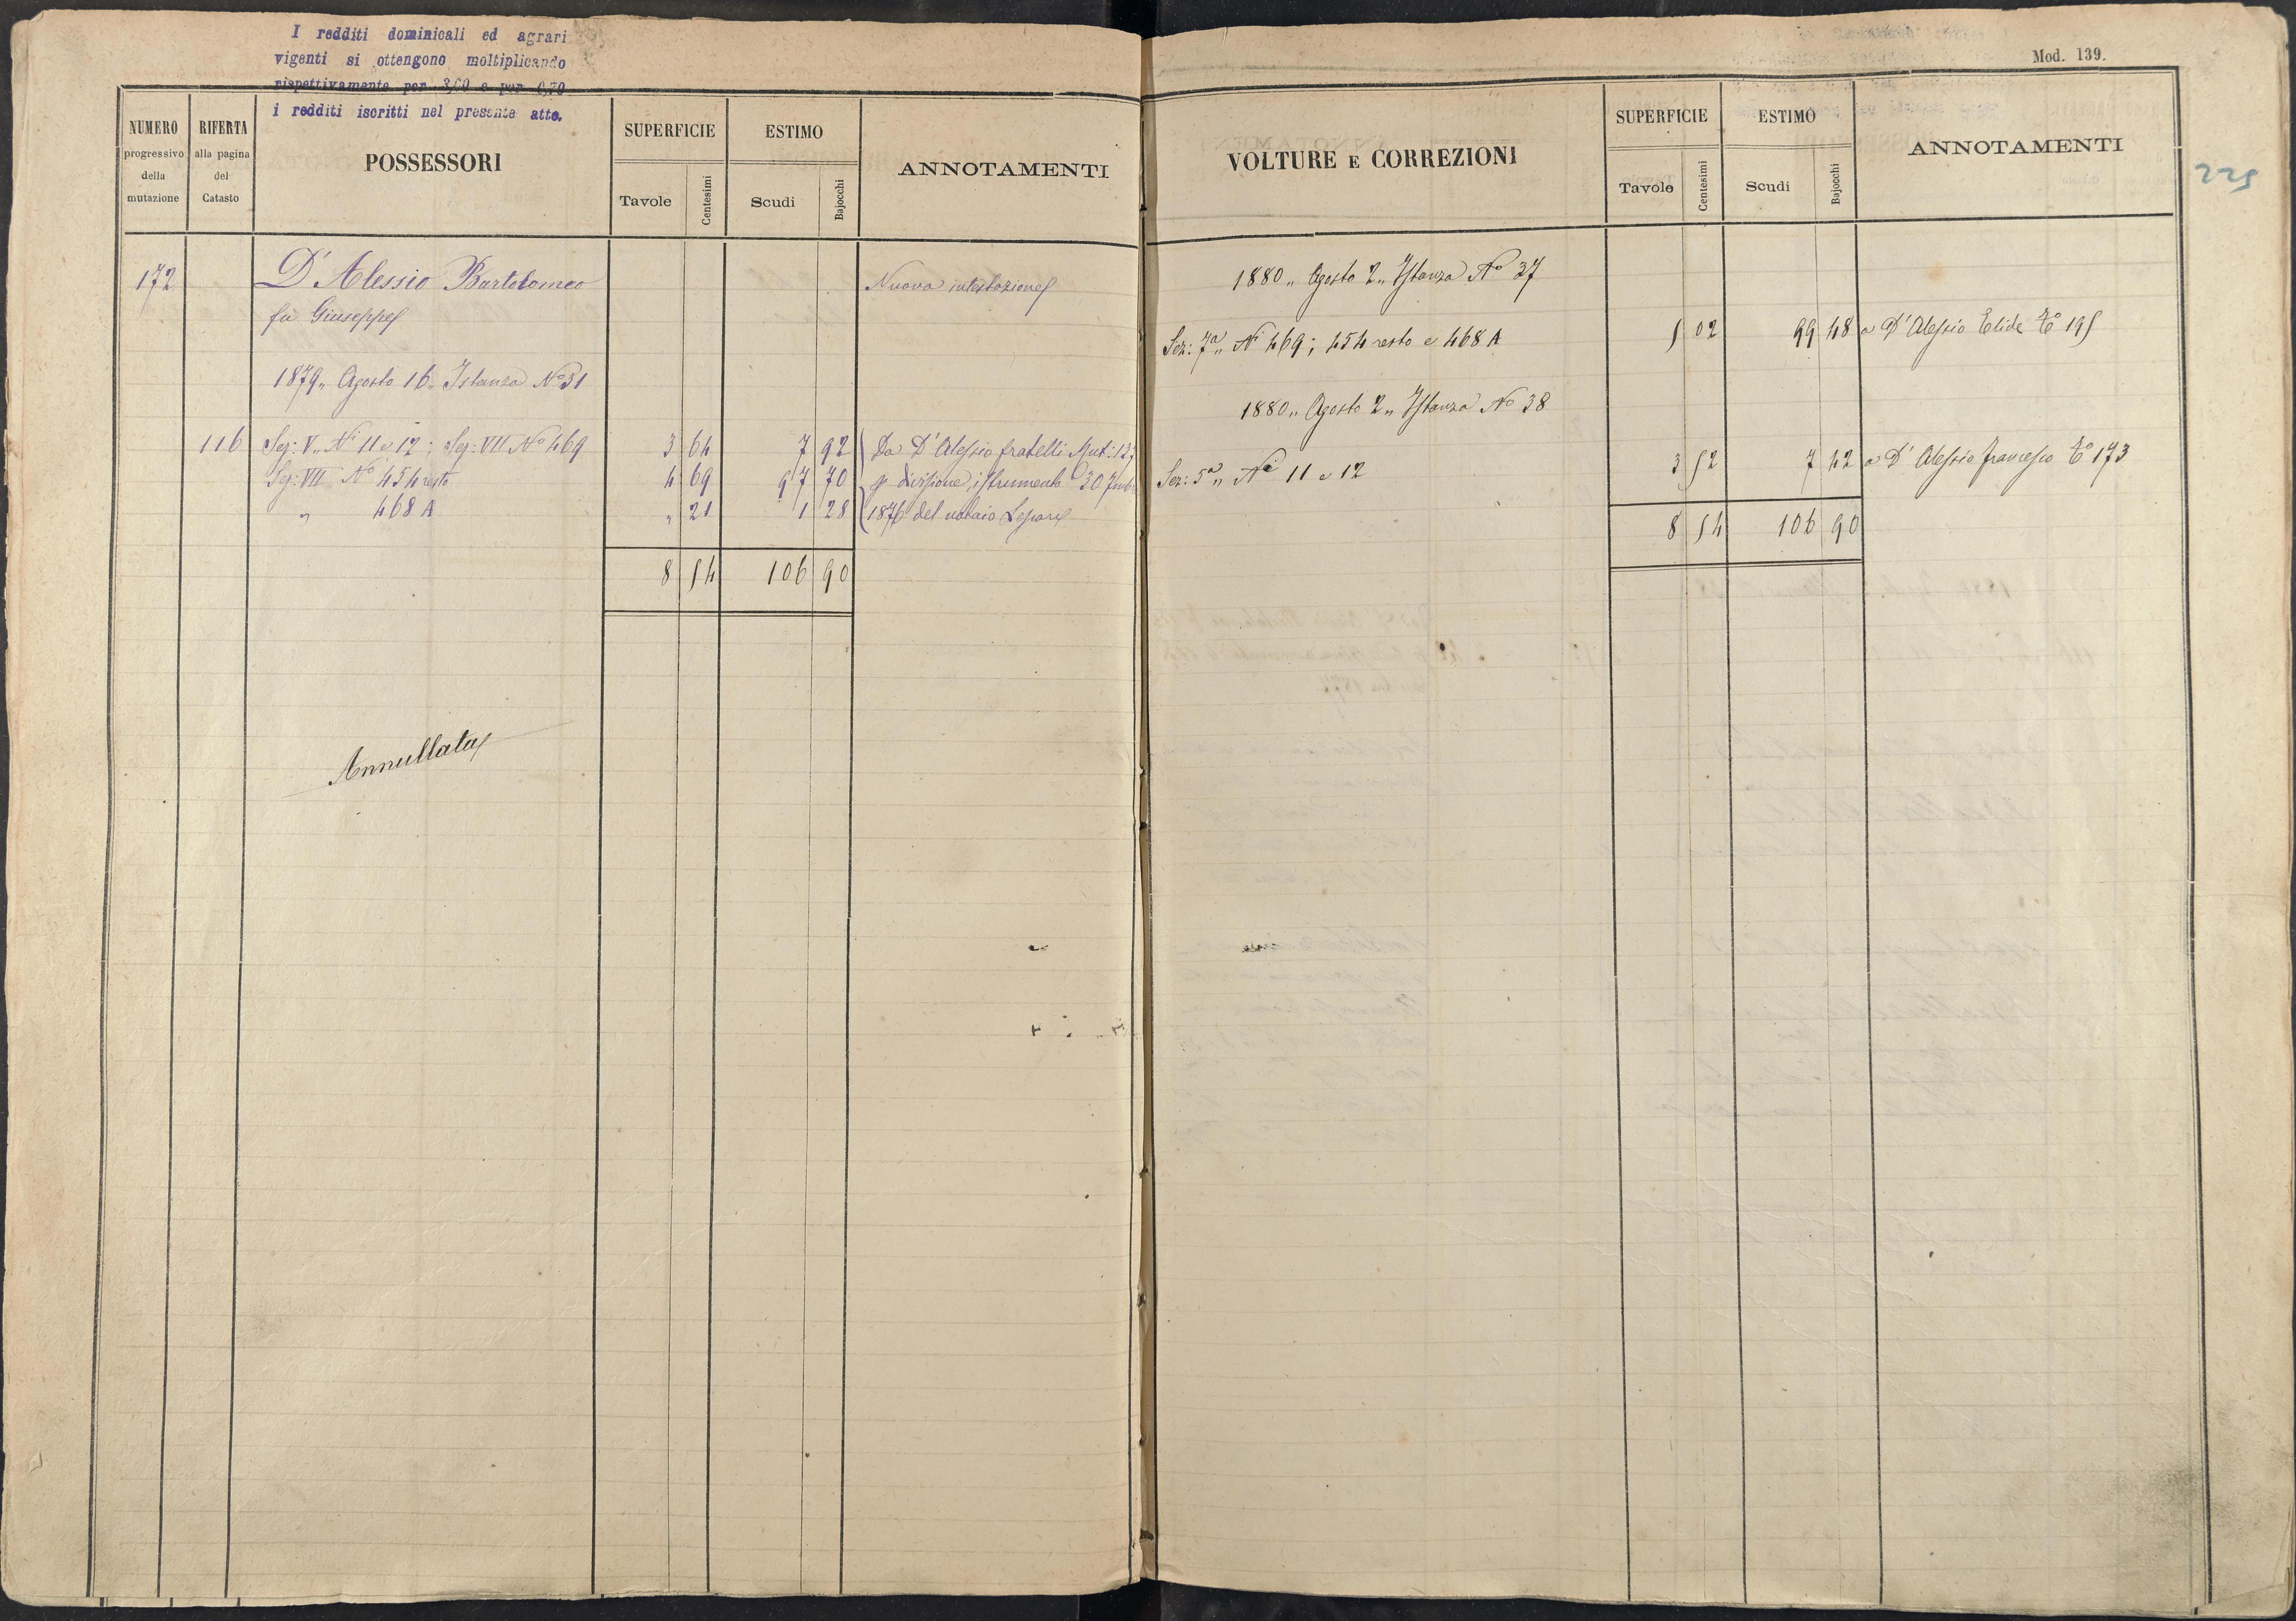 I redditi dominicali ed agrari
vigenti si ottengono moltiplicando
rispettivamente per 3,60 e per 0,70
i redditi iscritti nel presente atto.
NUMERO progressivo della mutazione
RIFERTA alla pagina del Catasto
POSSESSORI
SUPERFICIE
Tavole Centesimi
ESTIMO
Scudi Bajocchi
ANNOTAMENTI
172 D'Alessio Bartolomeo Nuova intestazione
fu Giuseppe
1879 „ Agosto 16 „ Istanza No 31
116 Sez: V „ Ni 11 e 12 ; Sez: VII No 469 3 64 7 92 Da D'Alessio fratelli Mut:
Sez: VII No 454 resto 4 69 97 70 divisione, istrumento 30
„ 468 A „ 21 1 28 1876 del notaio
8 54 106 90
Annullata
Mod. 139.
VOLTURE E CORREZIONI
SUPERFICIE
Tavole Centesimi
ESTIMO
Scudi Bajocchi
ANNOTAMENTI
225
1880 „ Agosto 2 „ Istanza No 37
Sez: 7a „ Ni 469 ; 454 resto e 468 A 5 02 99 48 a D'Alessio Elide 195
1880 „ Agosto 2 „ Istanza No 38
Sez: 5a „ Ni 11 e 12 3 52 7 42 a D'Alessio Francesco 173
8 54 106 90